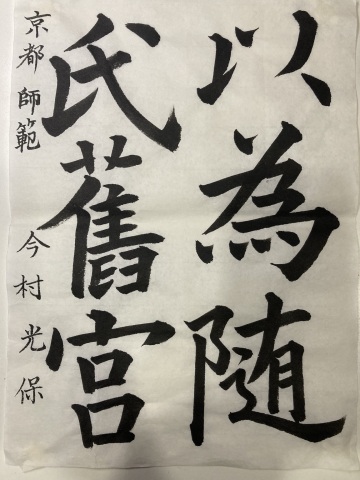 以為随
氏舊宮
京都師範 今村光保